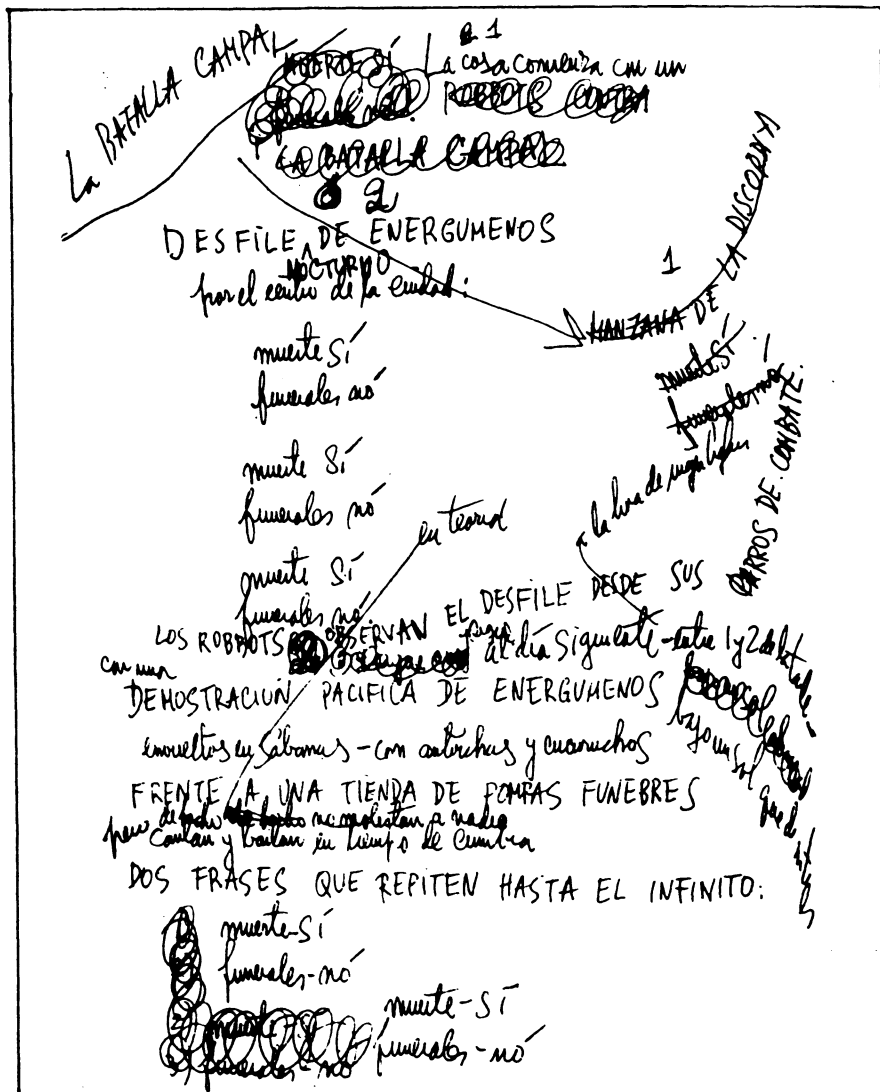 La BATALLA CAMPAL
1
MUERTE SÍ La cosa comienza con un
funerales nó! ROBBOTS CONTRA
LA BATALLA CAMPAL
2
DESFILE DE ENERGUMENOS
NOCTURNO
por el centro de la ciudad:
1
MANZANA DE LA DISCORDIA
muerte Sí
funerales nó
muerte Sí
funerales nó
muerte Sí
funerales nó
muerte Sí
funerales nó
a la hora de
en teoría
LOS ROBBOTS OBSERVAN EL DESFILE DESDE SUS CARROS DE COMBATE.
sigue al día siguiente - entre 1 y 2 de la tarde -
con una
DEMOSTRACION PACIFICA DE ENERGUMENOS
bajo un sol que
envueltos en sábanas - con antorchas y cucuruchos
FRENTE A UNA TIENDA DE POMPAS FUNEBRES
pero de hecho no molestan a nadie
Cantan y bailan en tiempo de cumbia
DOS FRASES QUE REPITEN HASTA EL INFINITO:
muerte-Sí
funerales-nó
muerte-Sí
funerales-nó
muerte-SÍ
funerales-nó